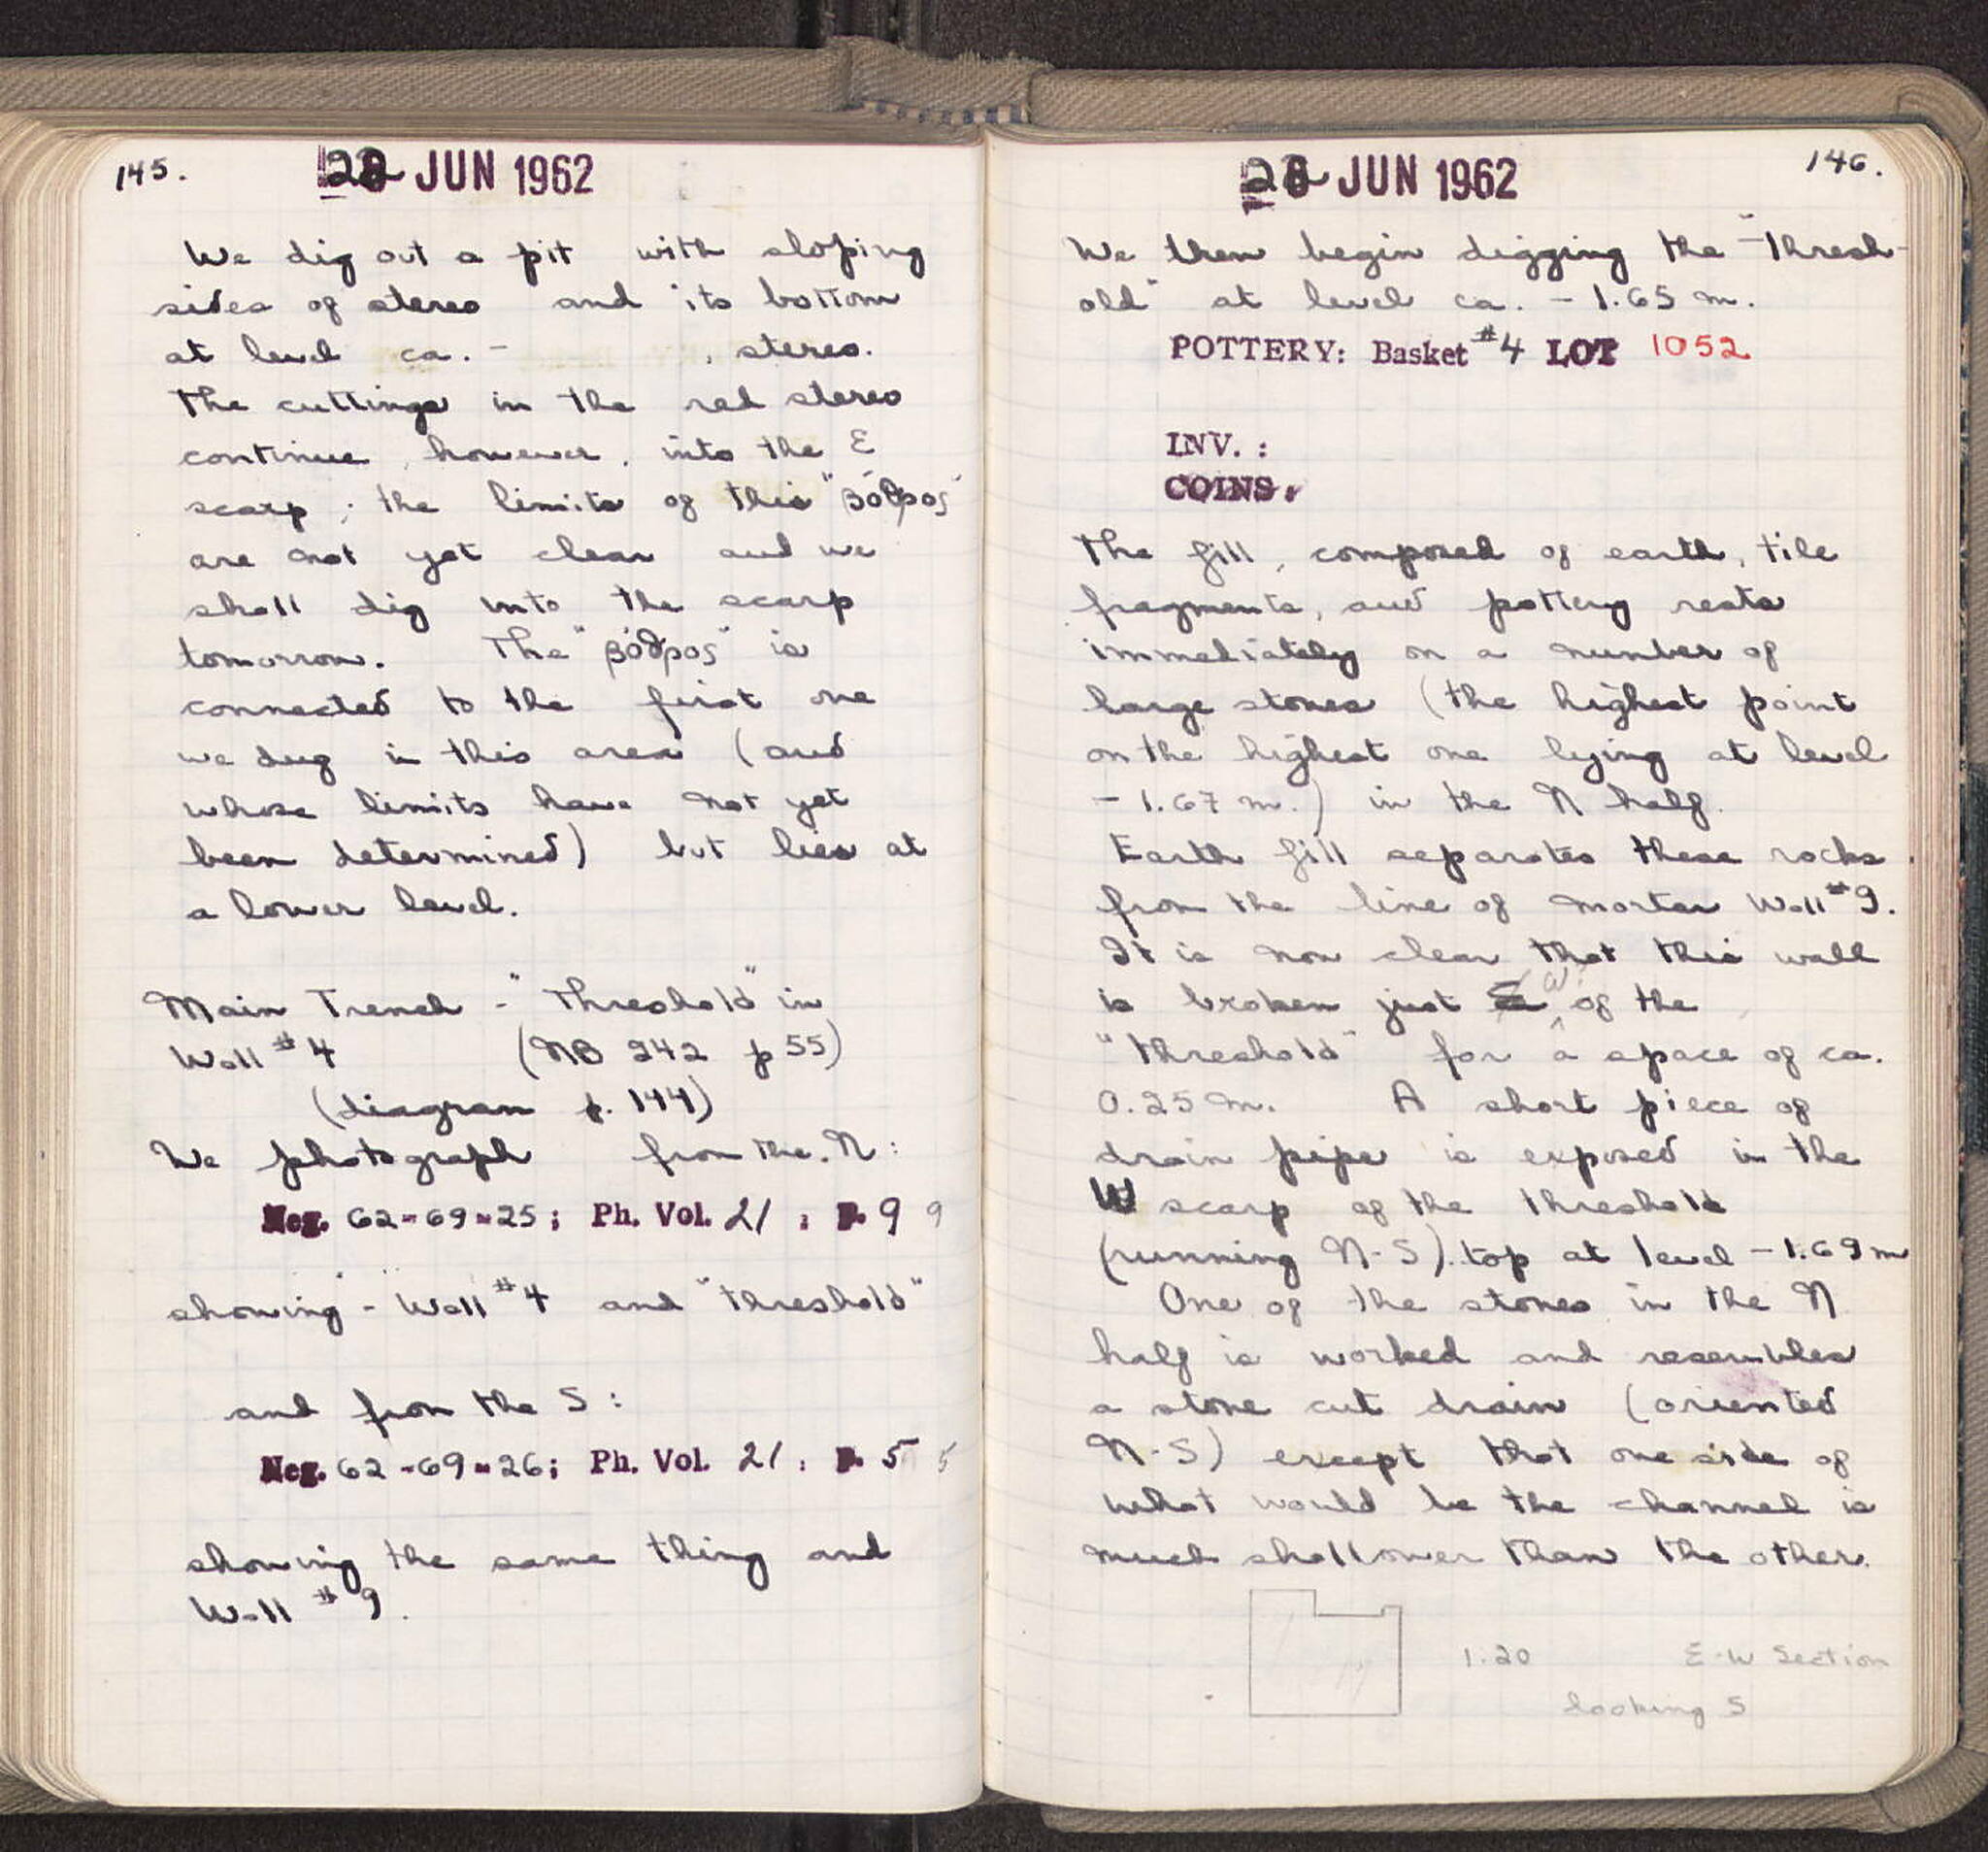 145.
22 JUN 1962
We dig out a pit with sloping
sides of stereo and its bottom
at level ca. - , stereo.
The cuttings in the red stereo
continue, however, into the E
scarp; the limits of this "βόθρος"
are not yet clear and we
shall dig into the scarp
tomorrow. The "βόθρος" is
connected to the first one
we dug in this area (and
whose limits have not yet
been determined) but lies at
a lower level.
Main Trench - "Threshold" in
Wall #4 (NB 242 p 55)
(diagram p. 144)
We photograph from the N:
Neg. 62-69-25; Ph. Vol. 21, p. 9 9
showing - Wall #4 and "threshold"
and from the S:
Neg. 62-69-26; Ph. Vol. 21, p. 5 5
showing the same thing and
Wall #9.
146.
22 JUN 1962
We then begin digging the "thresh-
old" at level ca. - 1.65 m.
POTTERY: Basket #4 LOT 1052
INV. :
COINS:
The fill, composed of earth, tile
fragments, and pottery rests
immediately on a number of
large stones (the highest point
on the highest one lying at level
- 1.67 m.) in the N half.
Earth fill separates these rocks
from the line of mortar Wall #9.
It is now clear that this wall
is broken just W of the
"threshold" for a space of ca.
0.25 m. A short piece of
drain pipe is exposed in the
W scarp of the threshold
(running N-S). top at level - 1.69 m
One of the stones in the N
half is worked and resembles
a stone cut drain (oriented
N-S) except that one side of
what would be the channel is
much shallower than the other.
1:20 E-W Section
looking S